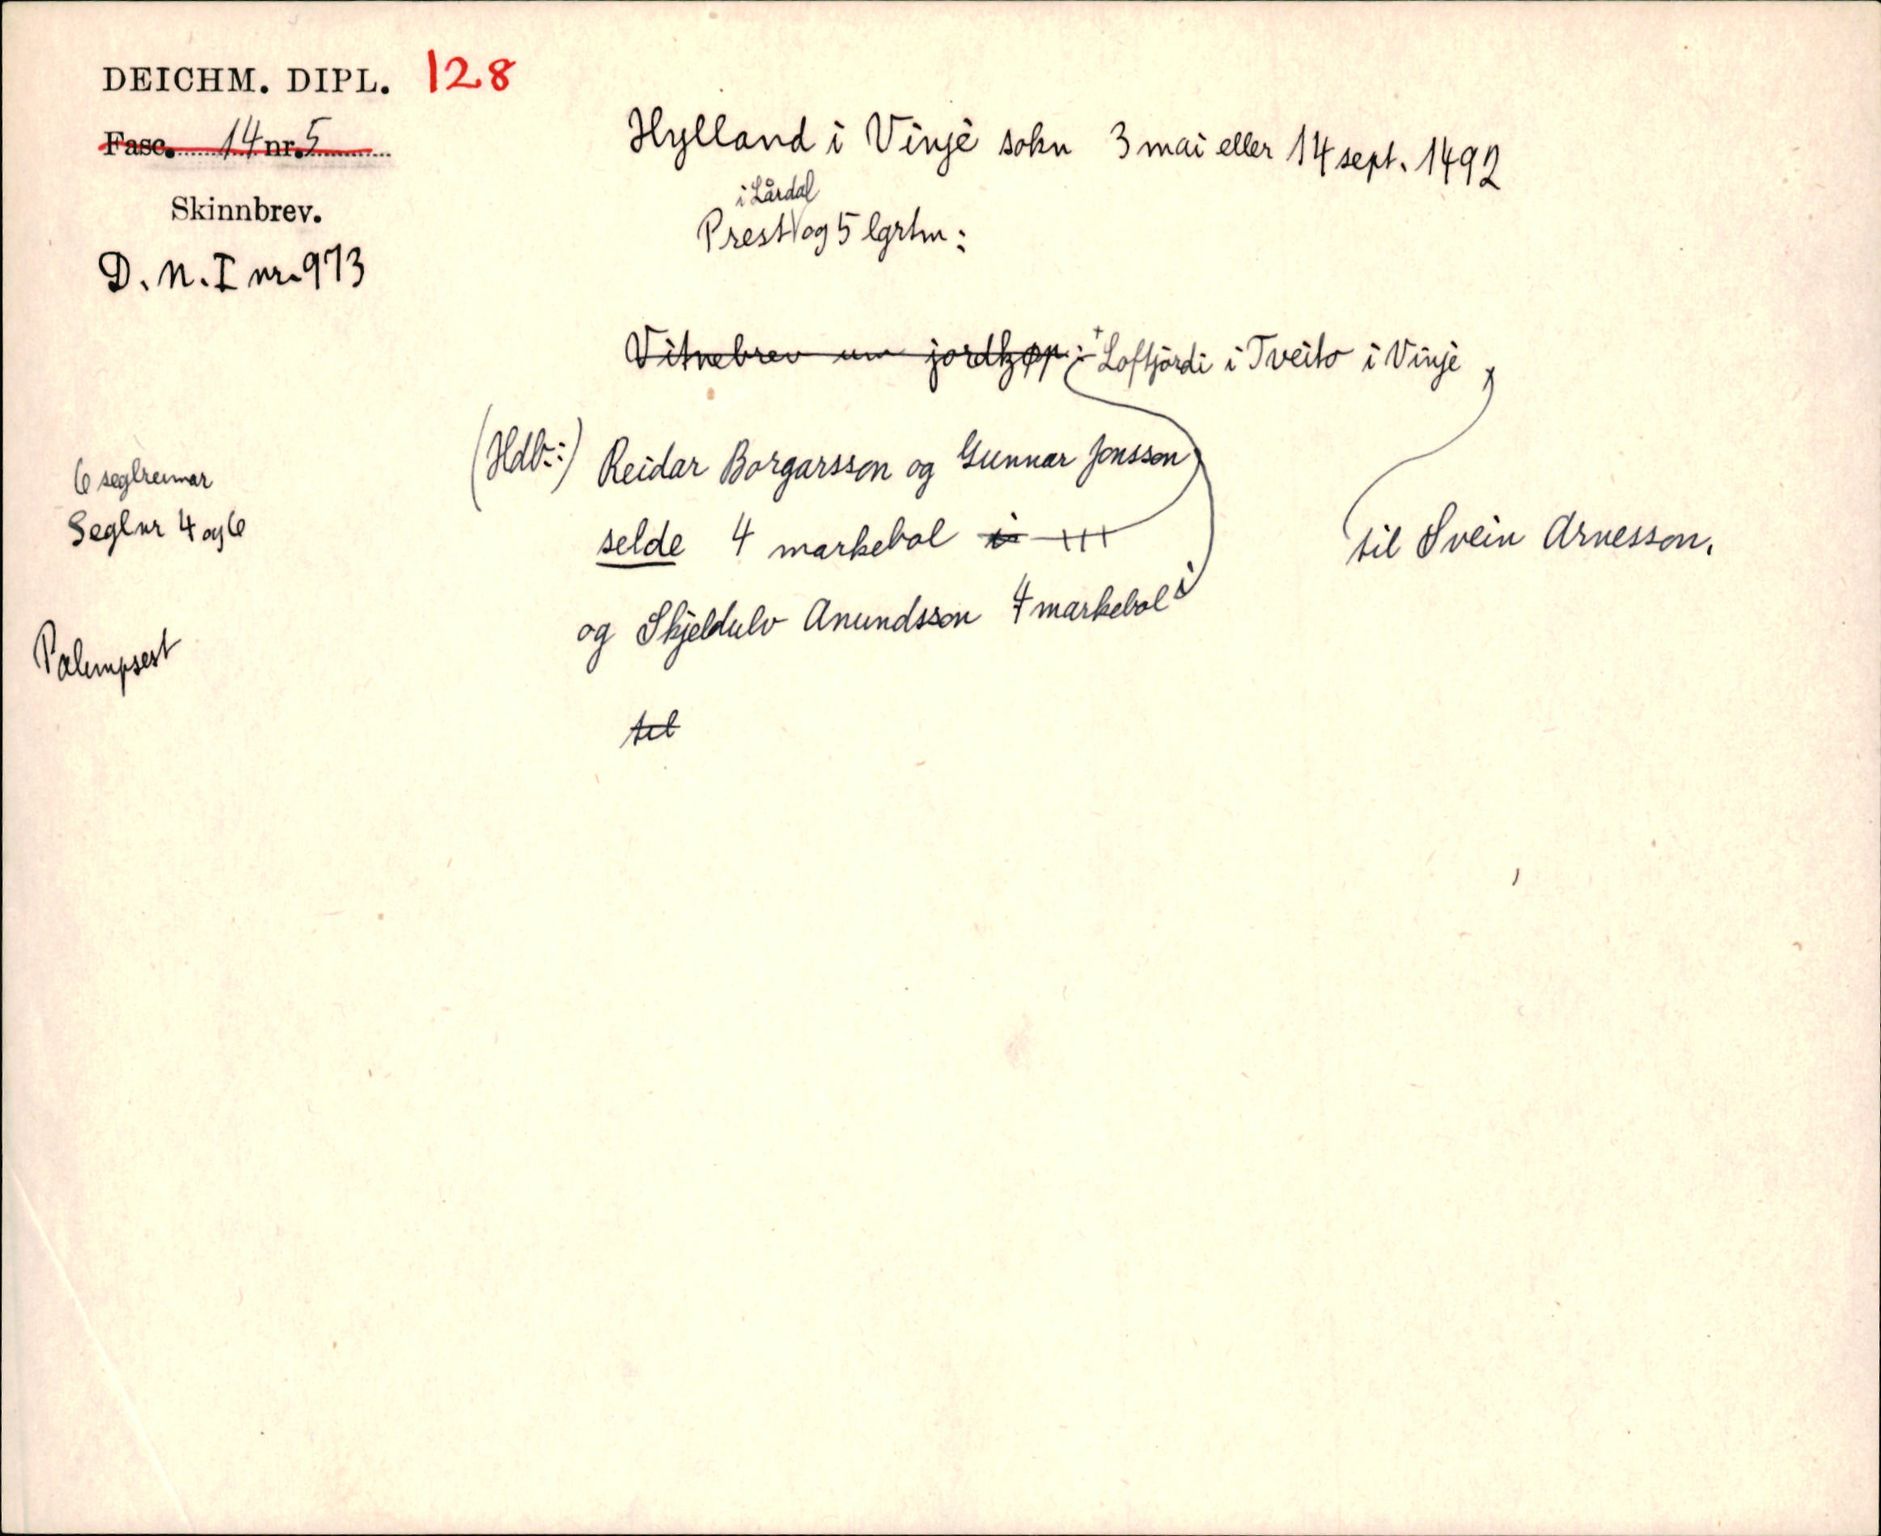 DEICHM. DIPL. 128
Fasc. 14 nr. 5
Skinnbrev.
D. N. I nr. 973
Hylland i Vinje sokn 3 mai eller 14 sept. 1492
i Lårdal
Prest og 5 lgrtm:
Vitnebrev um jordkøp: Loftjordi i Tveito i Vinje
(Hdl.:) Reidar Borgarsson og Gunnar Jonsson
selde 4 markebol i
til Svein Arnesson.
og Skjeldulv Anundsson 4 markebol i
til
6 seglreimar
Segl nr 4 og 6
Palimpsest